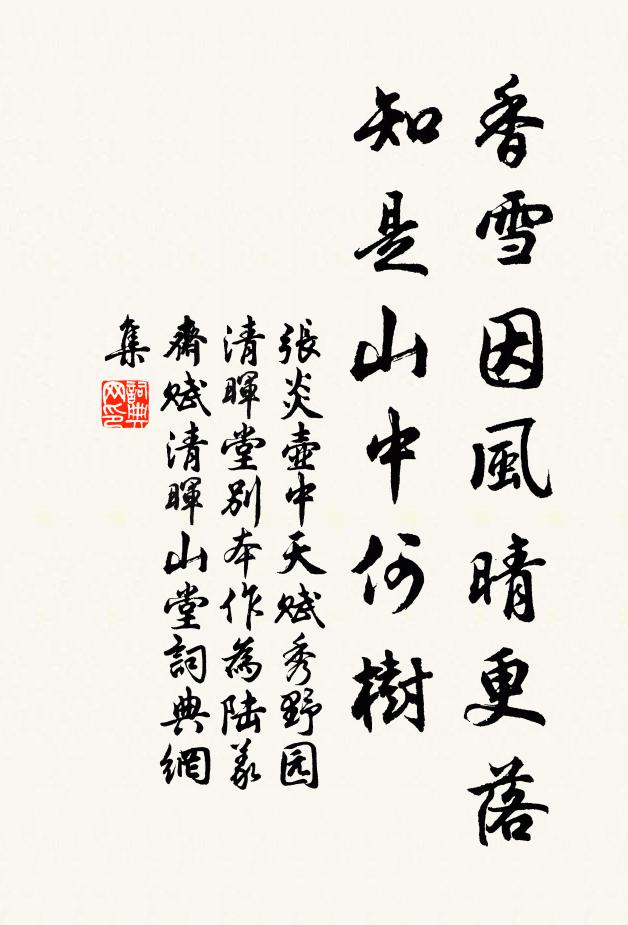 香雪因風晴更落
知是山中何樹
張炎壺中天賦秀野园
清暉堂別本作為陸義
齋賦清暉山堂詞典網
集
詞典
网印